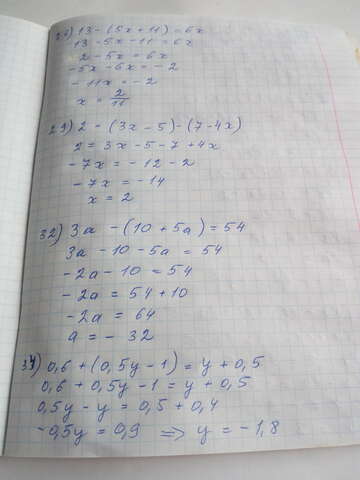 26) 13 - (5x + 11) = 6x
13 - 5x - 11 = 6x
2 - 5x = 6x
-5x - 6x = -2
-11x = -2
x = 2/11
29) 2 = (3x - 5) - (7 - 4x)
2 = 3x - 5 - 7 + 4x
-7x = -12 - 2
-7x = -14
x = 2
32) 3a - (10 + 5a) = 54
3a - 10 - 5a = 54
-2a - 10 = 54
-2a = 54 + 10
-2a = 64
a = - 32
34) 0,6 + (0,5y - 1) = y + 0,5
0,6 + 0,5y - 1 = y + 0,5
0,5y - y = 0,5 + 0,4
-0,5y = 0,9 => y = -1,8